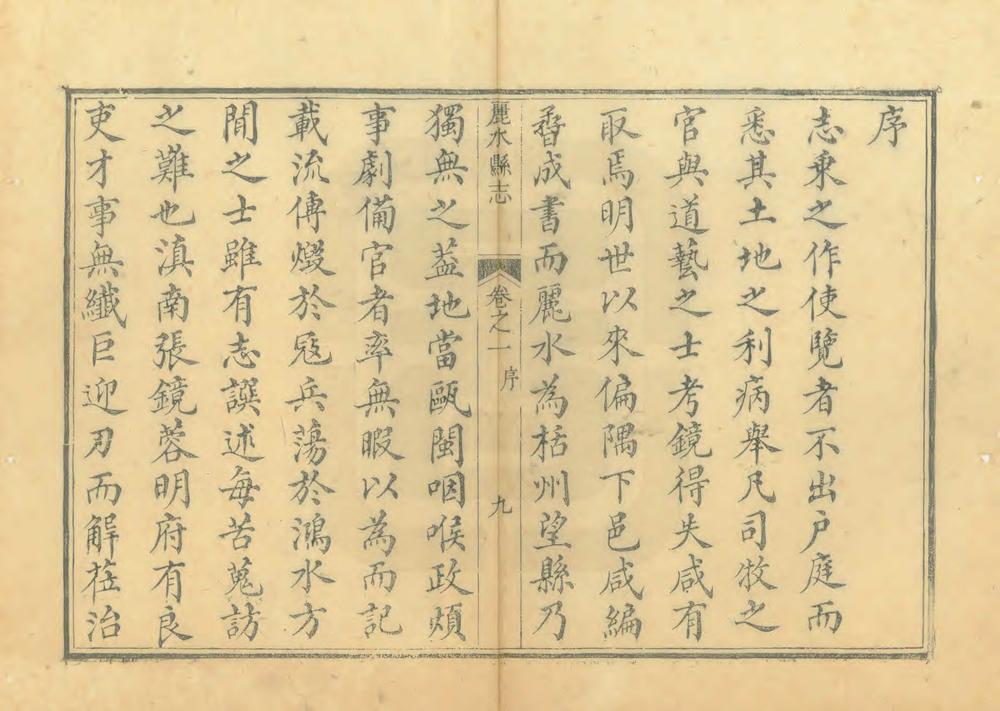 序
志乗之作使覽者不出户庭而
悉其土地之利病舉凡司牧之
官與道藝之士考鏡得失咸有
取焉明世以來偏隅下邑咸編
沓成書而麗水為栝州望縣乃
麗水縣志 卷之一 序 九
獨無之葢地當甌閩咽喉政煩
事劇備官者率無暇以為而記
載流傳燬於寇兵蕩於鴻水方
聞之士雖有志譔述每苦蒐訪
之難也滇南張鏡蓉明府有良
吏才事無纖巨迎刃而解莅治